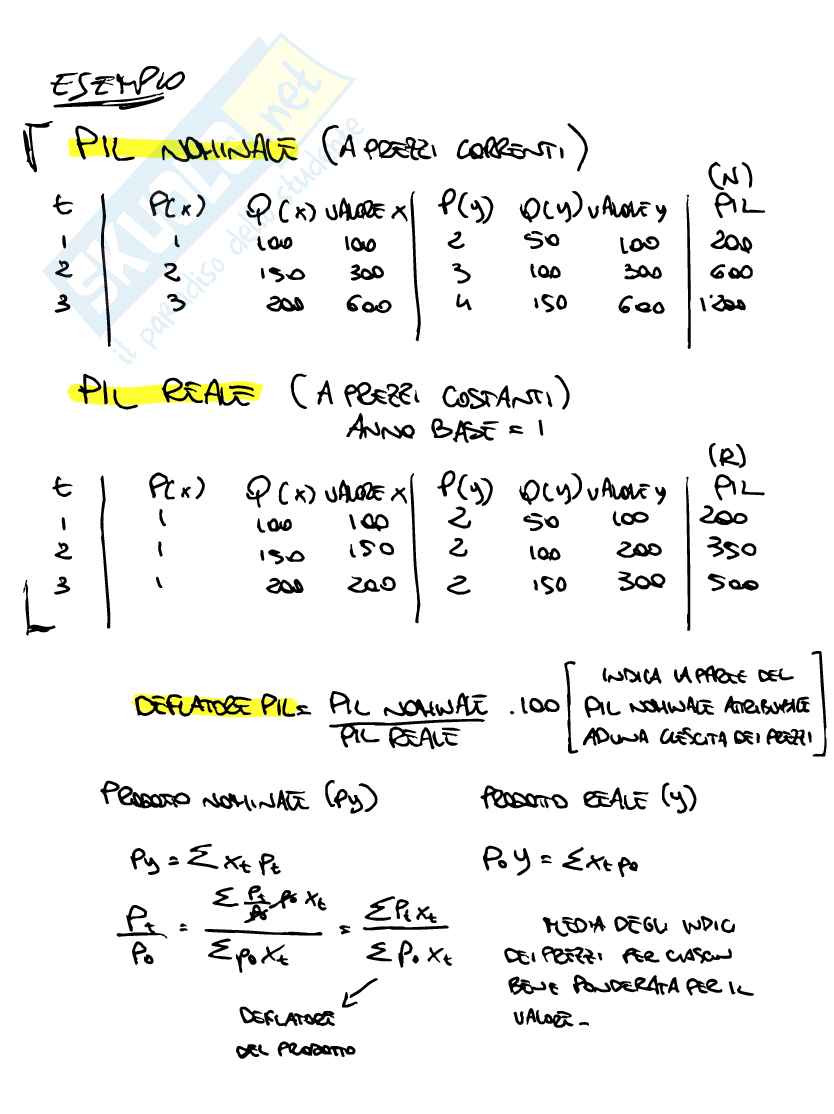 ESEMPIO
PIL NOMINALE (A PREZZI CORRENTI)
(N)
t P(x) Q(x) VALORE x P(y) Q(y) VALORE y PIL
1 1 100 100 2 50 100 200
2 2 150 300 3 100 300 600
3 3 200 600 4 150 600 1200
PIL REALE (A PREZZI COSTANTI)
ANNO BASE = 1
(R)
t P(x) Q(x) VALORE x P(y) Q(y) VALORE y PIL
1 1 100 100 2 50 100 200
2 1 150 150 2 100 200 350
3 1 200 200 2 150 300 500
DEFLATORE PIL = PIL NOMINALE / PIL REALE . 100 [INDICA LA PARTE DEL
PIL NOMINALE ATTRIBUIBILE
AD UNA CRESCITA DEI PREZZI]
PRODOTTO NOMINALE (Py) PRODOTTO REALE (y)
Py = Σ xt Pt P0 y = Σ xt p0
Pt / P0 = Σ Pt/P0 p0 xt / Σ p0 xt = Σ Pt xt / Σ P0 xt
MEDIA DEGLI INDICI
DEI PREZZI PER CIASCUN
BENE PONDERATA PER IL
VALORE -
DEFLATORE
DEL PRODOTTO
SKUOLA.net
il paradiso dello studente